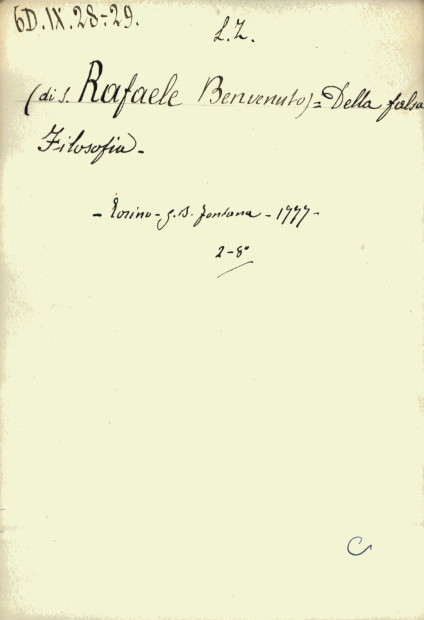 6D.IX.28-29.
L.Z.
(di S. Rafaele Benvenuto) = Della falsa
Filosofia -
- Torino - G. B. Fontana - 1777 -
2-8°
C